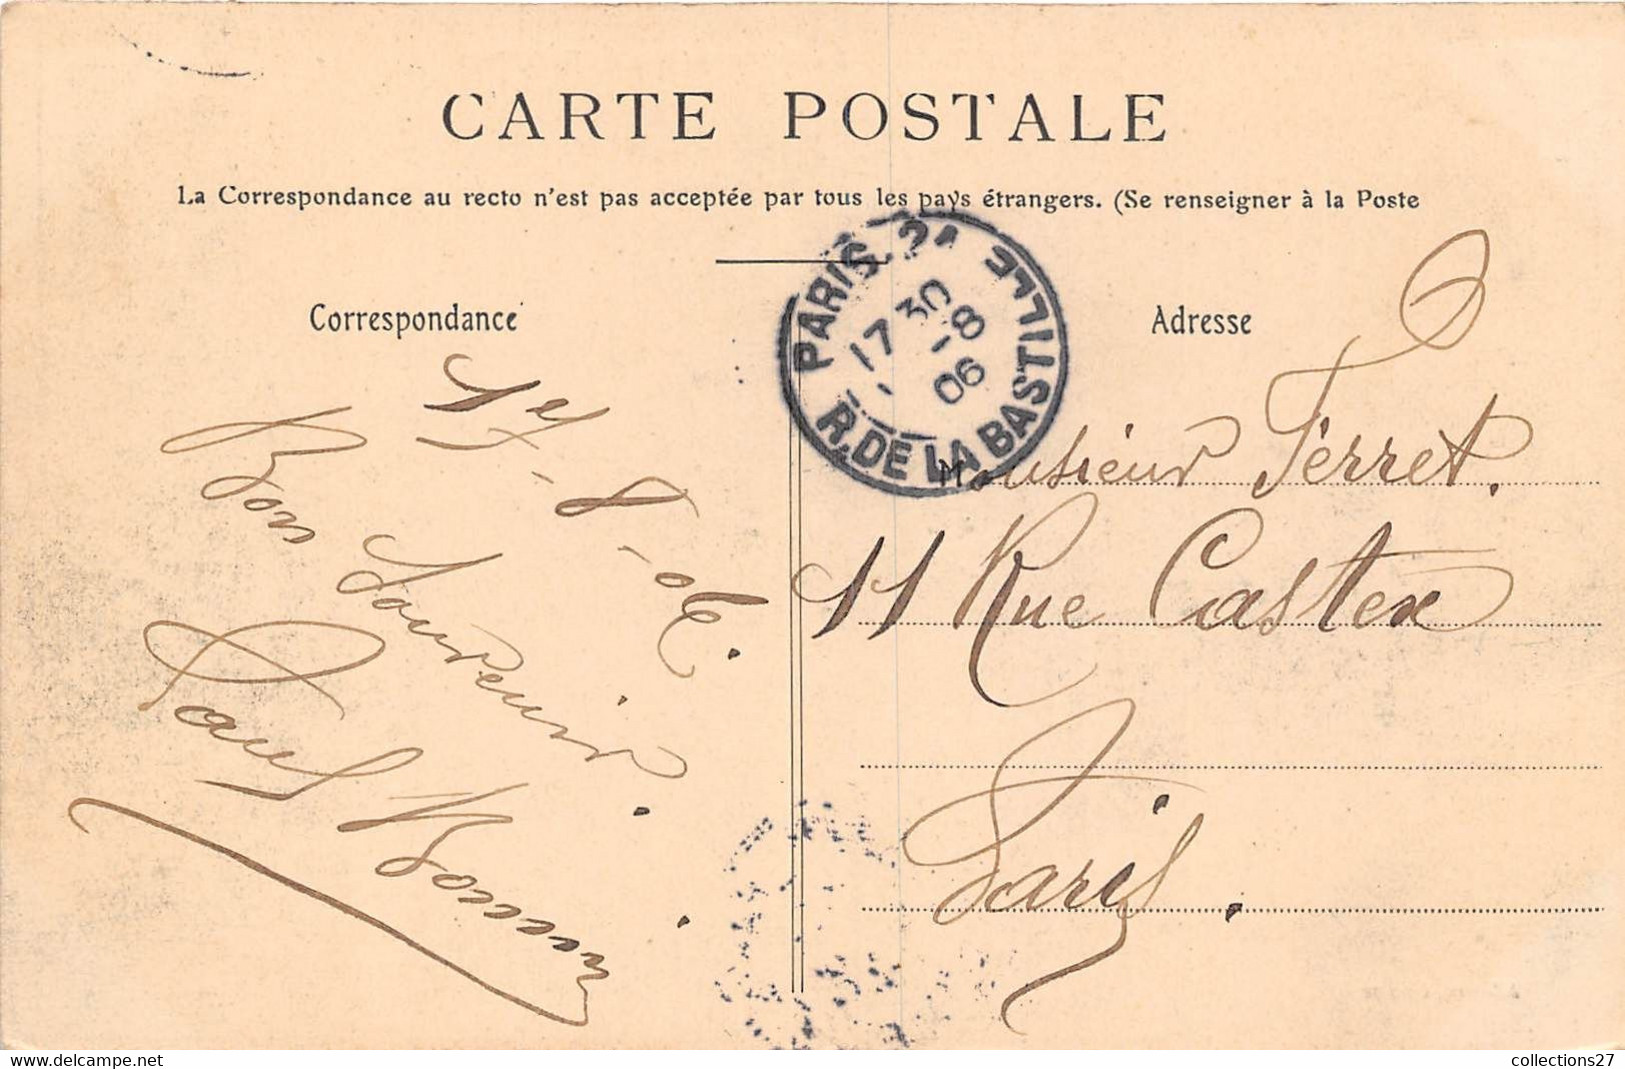 CARTE POSTALE
La Correspondance au recto n'est pas acceptée par tous les pays étrangers. (Se renseigner à la Poste
Correspondance
1er - 8 - 06.
Bon Souvenir.
Paul
PARIS. 24
R. DE LA BASTILLE
17 30
1 - 8
06
Adresse
Monsieur Ferret.
11 Rue Castex
Paris.
collections27